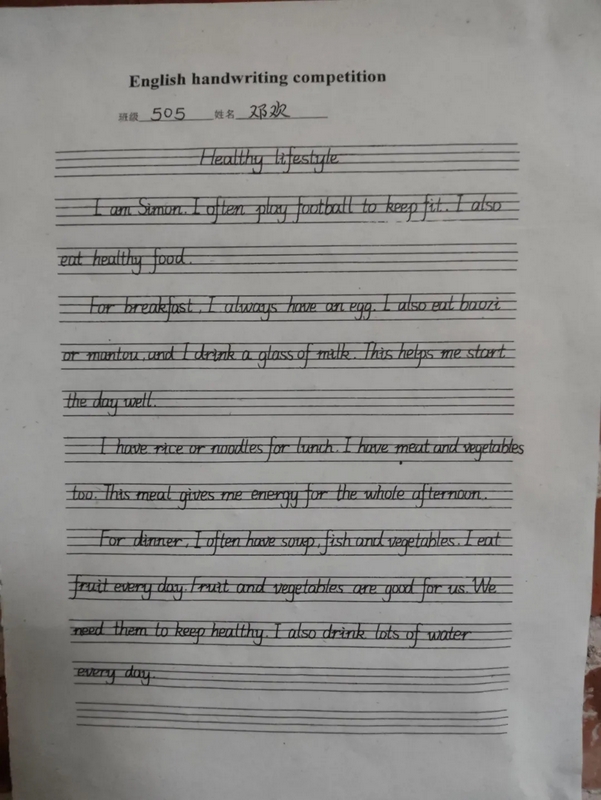 English handwriting competition
班级 505 姓名 邓欢
Healthy lifestyle
I am Simon. I often play football to keep fit. I also
eat healthy food.
For breakfast, I always have an egg. I also eat baozi
or mantou, and I drink a glass of milk. This helps me start
the day well.
I have rice or noodles for lunch. I have meat and vegetables
too. This meal gives me energy for the whole afternoon.
For dinner, I often have soup, fish and vegetables. I eat
fruit every day. Fruit and vegetables are good for us. We
need them to keep healthy. I also drink lots of water
every day.